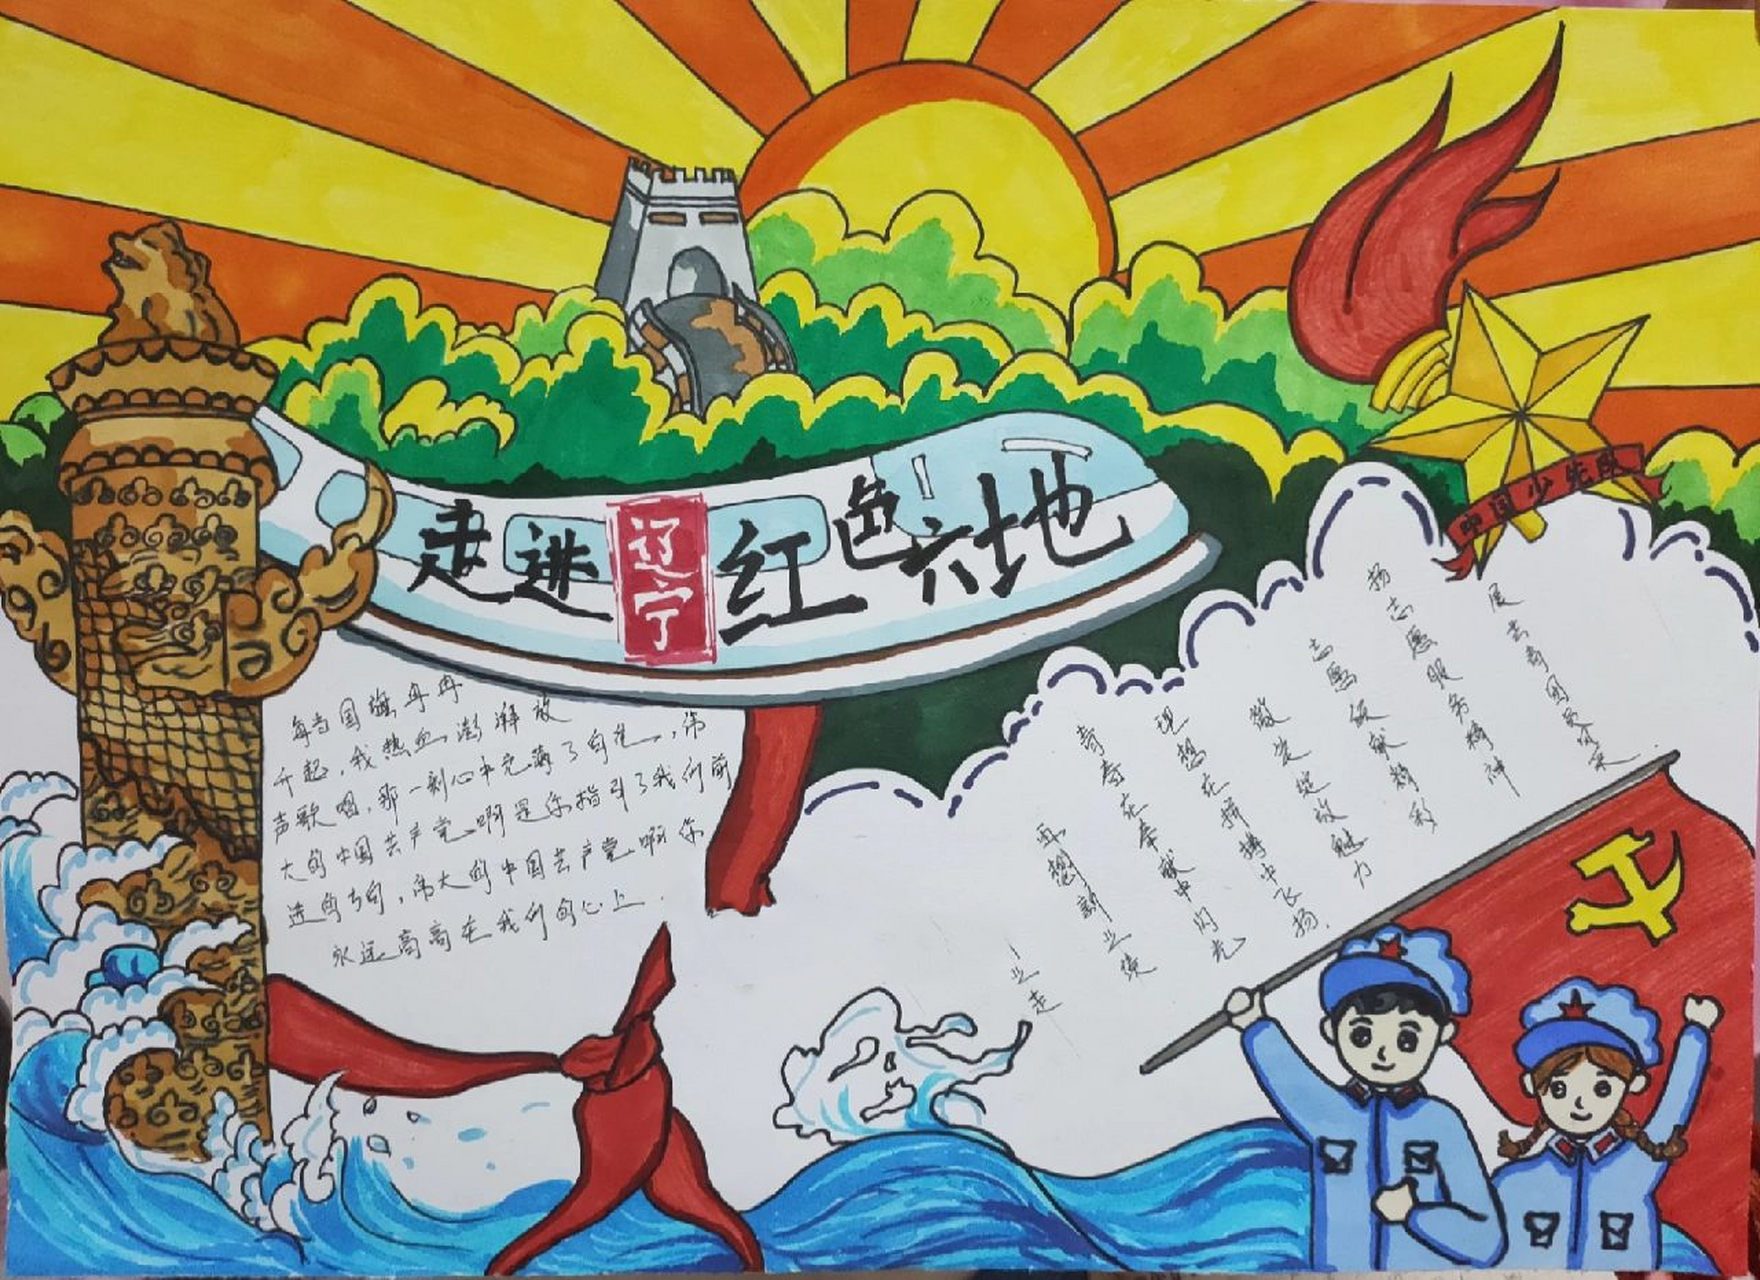 走进辽宁红色六地
中国少先队
每当国旗冉冉
升起，我热血澎湃放
声歌唱，那一刻心中充满了自豪，伟
大的中国共产党啊是你指引了我们前
进的方向，伟大的中国共产党啊你
永远高高在我们的心上。
展志奇团员风采
扬志愿服务精神
志愿征献精彩
微笑绽放魅力
理想在拼搏中飞扬
青春在奉献中闪光
再想新业绩